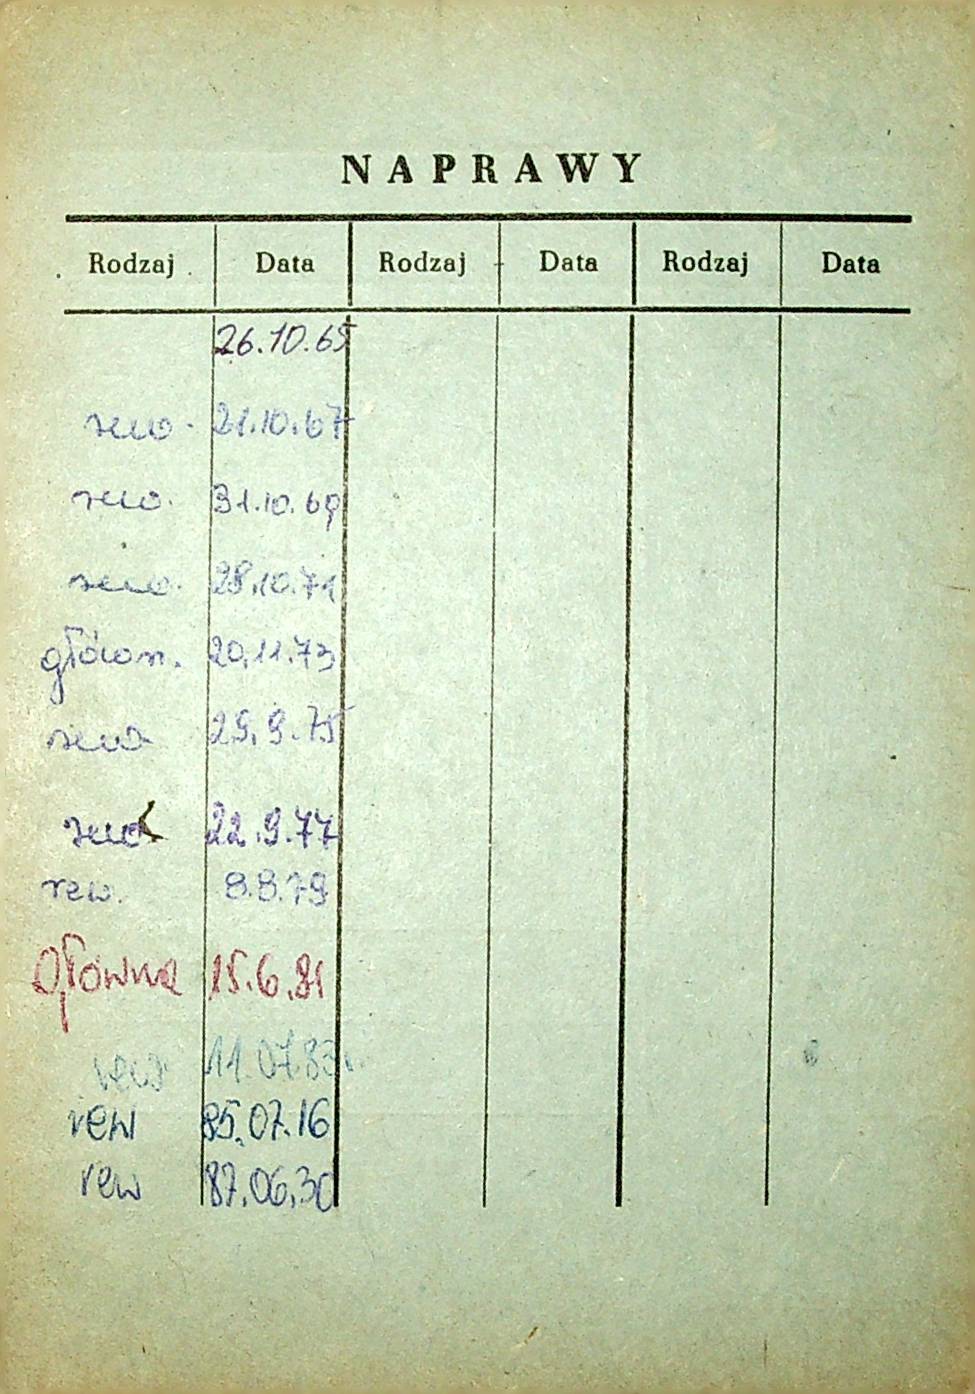 NAPRAWY
Rodzaj Data Rodzaj Data Rodzaj Data
26.10.65
rew. 21.10.67
rew. 31.10.69
rew. 28.10.71
główn. 20.11.73
rew 29.9.75
rew 22.9.77
rew. 8.8.79
Główna 15.6.81
rew 11.07.83r.
rew 85.07.16
rew 87.06.30